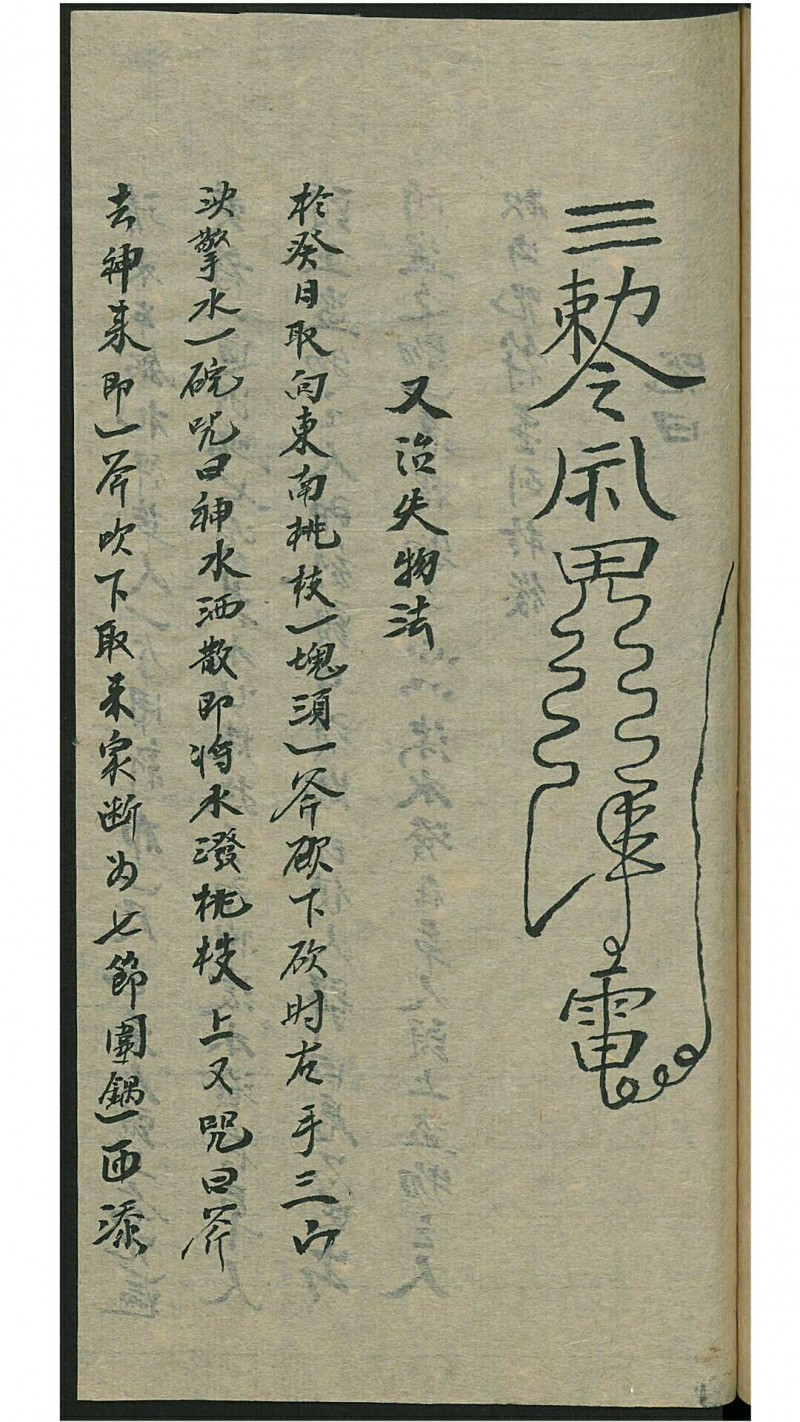 三勅令
又治失物法
於癸日取向東南桃枝一塊須一斧砍下砍时左手三山
决擎水一碗咒曰神水洒散即将水潑桃枝上又咒曰斧
去神来即一斧吹下取来家断为七節圍鍋一匝添